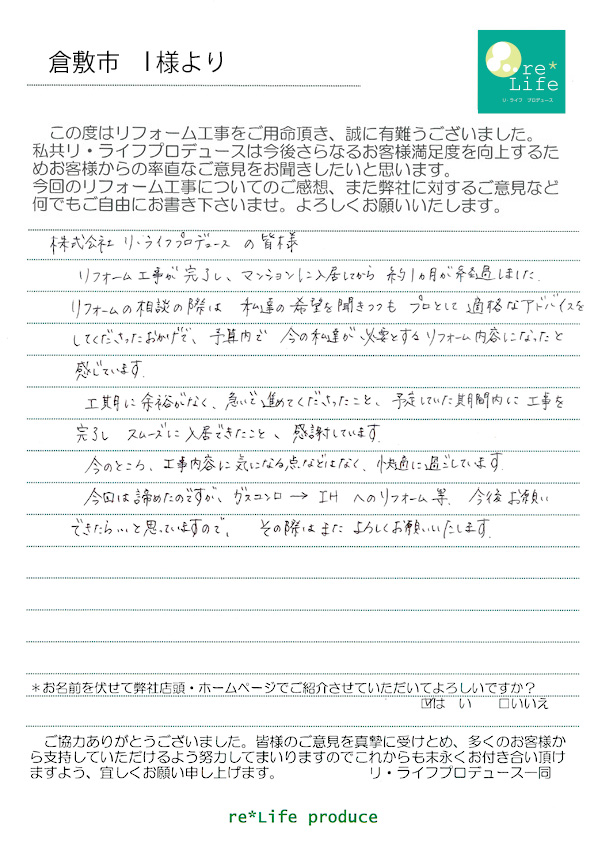 倉敷市　I様より
re*
Life
リ・ライフ　プロデュース
この度はリフォーム工事をご用命頂き、誠に有難うございました。
私共リ・ライフプロデュースは今後さらなるお客様満足度を向上するた
めお客様からの率直なご意見をお聞きしたいと思います。
今回のリフォーム工事についてのご感想、また弊社に対するご意見など
何でもご自由にお書き下さいませ。よろしくお願いいたします。
株式会社 リ・ライフプロデュース の皆様
リフォーム工事が完了し、マンションに入居してから 約1ヵ月が経過しました.
リフォームの相談の際は 私達の希望を聞きつつも プロとして 適格なアドバイスを
してくださったおかげで、予算内で 今の私達が必要とするリフォーム内容になったと
感じています.
工期に余裕がなく、急いで進めてくださったこと、予定していた期間内に工事を
完了し スムーズに入居できたこと、感謝しています.
今のところ、工事内容に気になる点などはなく、快適に過ごしています.
今回は諦めたのですが、ガスコンロ → IH へのリフォーム等、今後お願い
できたらいいと思っていますので、 その際はまた よろしくお願いいたします.
＊お名前を伏せて弊社店頭・ホームページでご紹介させていただいてよろしいですか？
☑は　い　　□いいえ
ご協力ありがとうございました。皆様のご意見を真摯に受けとめ、多くのお客様か
ら支持していただけるよう努力してまいりますのでこれからも末永くお付き合い頂け
ますよう、宜しくお願い申し上げます。　　　リ・ライフプロデュース一同
re*Life produce